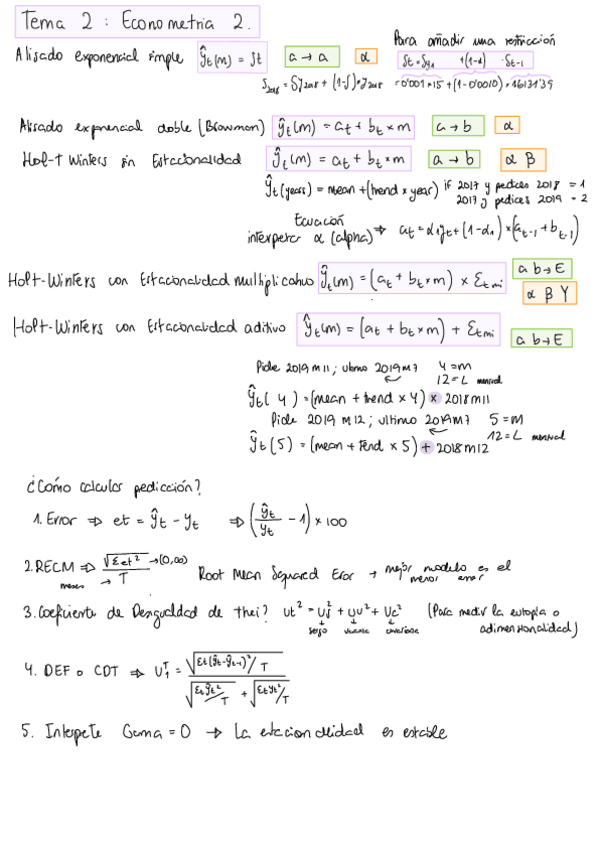 Tema 2 : Econometria 2.
Para añadir una restricción
Alisado exponencial simple ŷt(m) = St a → a α St = Sy1 1(1-α) · St-1
S2018 = Sy2018 + (1-S)·y2018 = 0'001×15 + (1-0'0010)×16131'39
Alisado exponencial doble (Brownon) ŷt(m) = at + bt × m a → b α
Hol-t Winters sin Estacionalidad ŷt(m) = at + bt × m a → b α β
ŷt(years) = mean + (trend × year) if 2017 y pedices 2018 = 1
2017 y pedices 2019 = 2
Ecuación
interpreta α (alpha) ⇒ at = α1yt + (1-α1) × (at-1 + bt-1)
Holt-Winters con Estacionalidad multiplicativo ŷt(m) = (at + bt × m) × Etmi a b → E
α β γ
Holt-Winters con Estacionalidad aditivo ŷt(m) = (at + bt × m) + Etmi a b → E
Pide 2019 m11 ; ultimo 2019 m7 4 = m
12 = L mensual
ŷt( 4 ) = (mean + trend × 4) × 2018m11
Pide 2019 m12 ; ultimo 2019m7 5 = m
12 = L mensual
ŷt(5) = (mean + tend × 5) + 2018m12
¿Como calculas pedicción?
1. Error ⇒ et = ŷt - yt ⇒ (ŷt/yt - 1) × 100
2. RECM ⇒ √Σet² / T → (0,∞) Root Mean Squared Eror → mejor modelo es el
meses menor error
3. Coeficiente de Desigualdad de Thei? Ut² = Us² + Uv² + Uc² (Para medir la eutopia o
sesgo varianza covarianza adimensionalidad)
4. DEF o CDT ⇒ U1T = √Σt(ŷt-ŷt-1)²/T / √Σtŷt²/T + √Σtyt²/T
5. Interpete Gama = 0 → La estacionalidad es estable